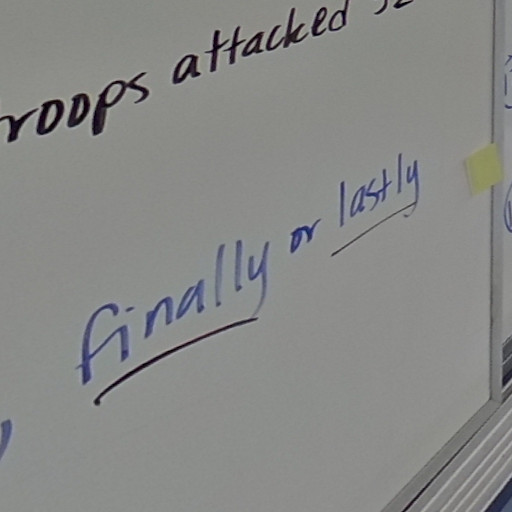 attacked
finally or lastly